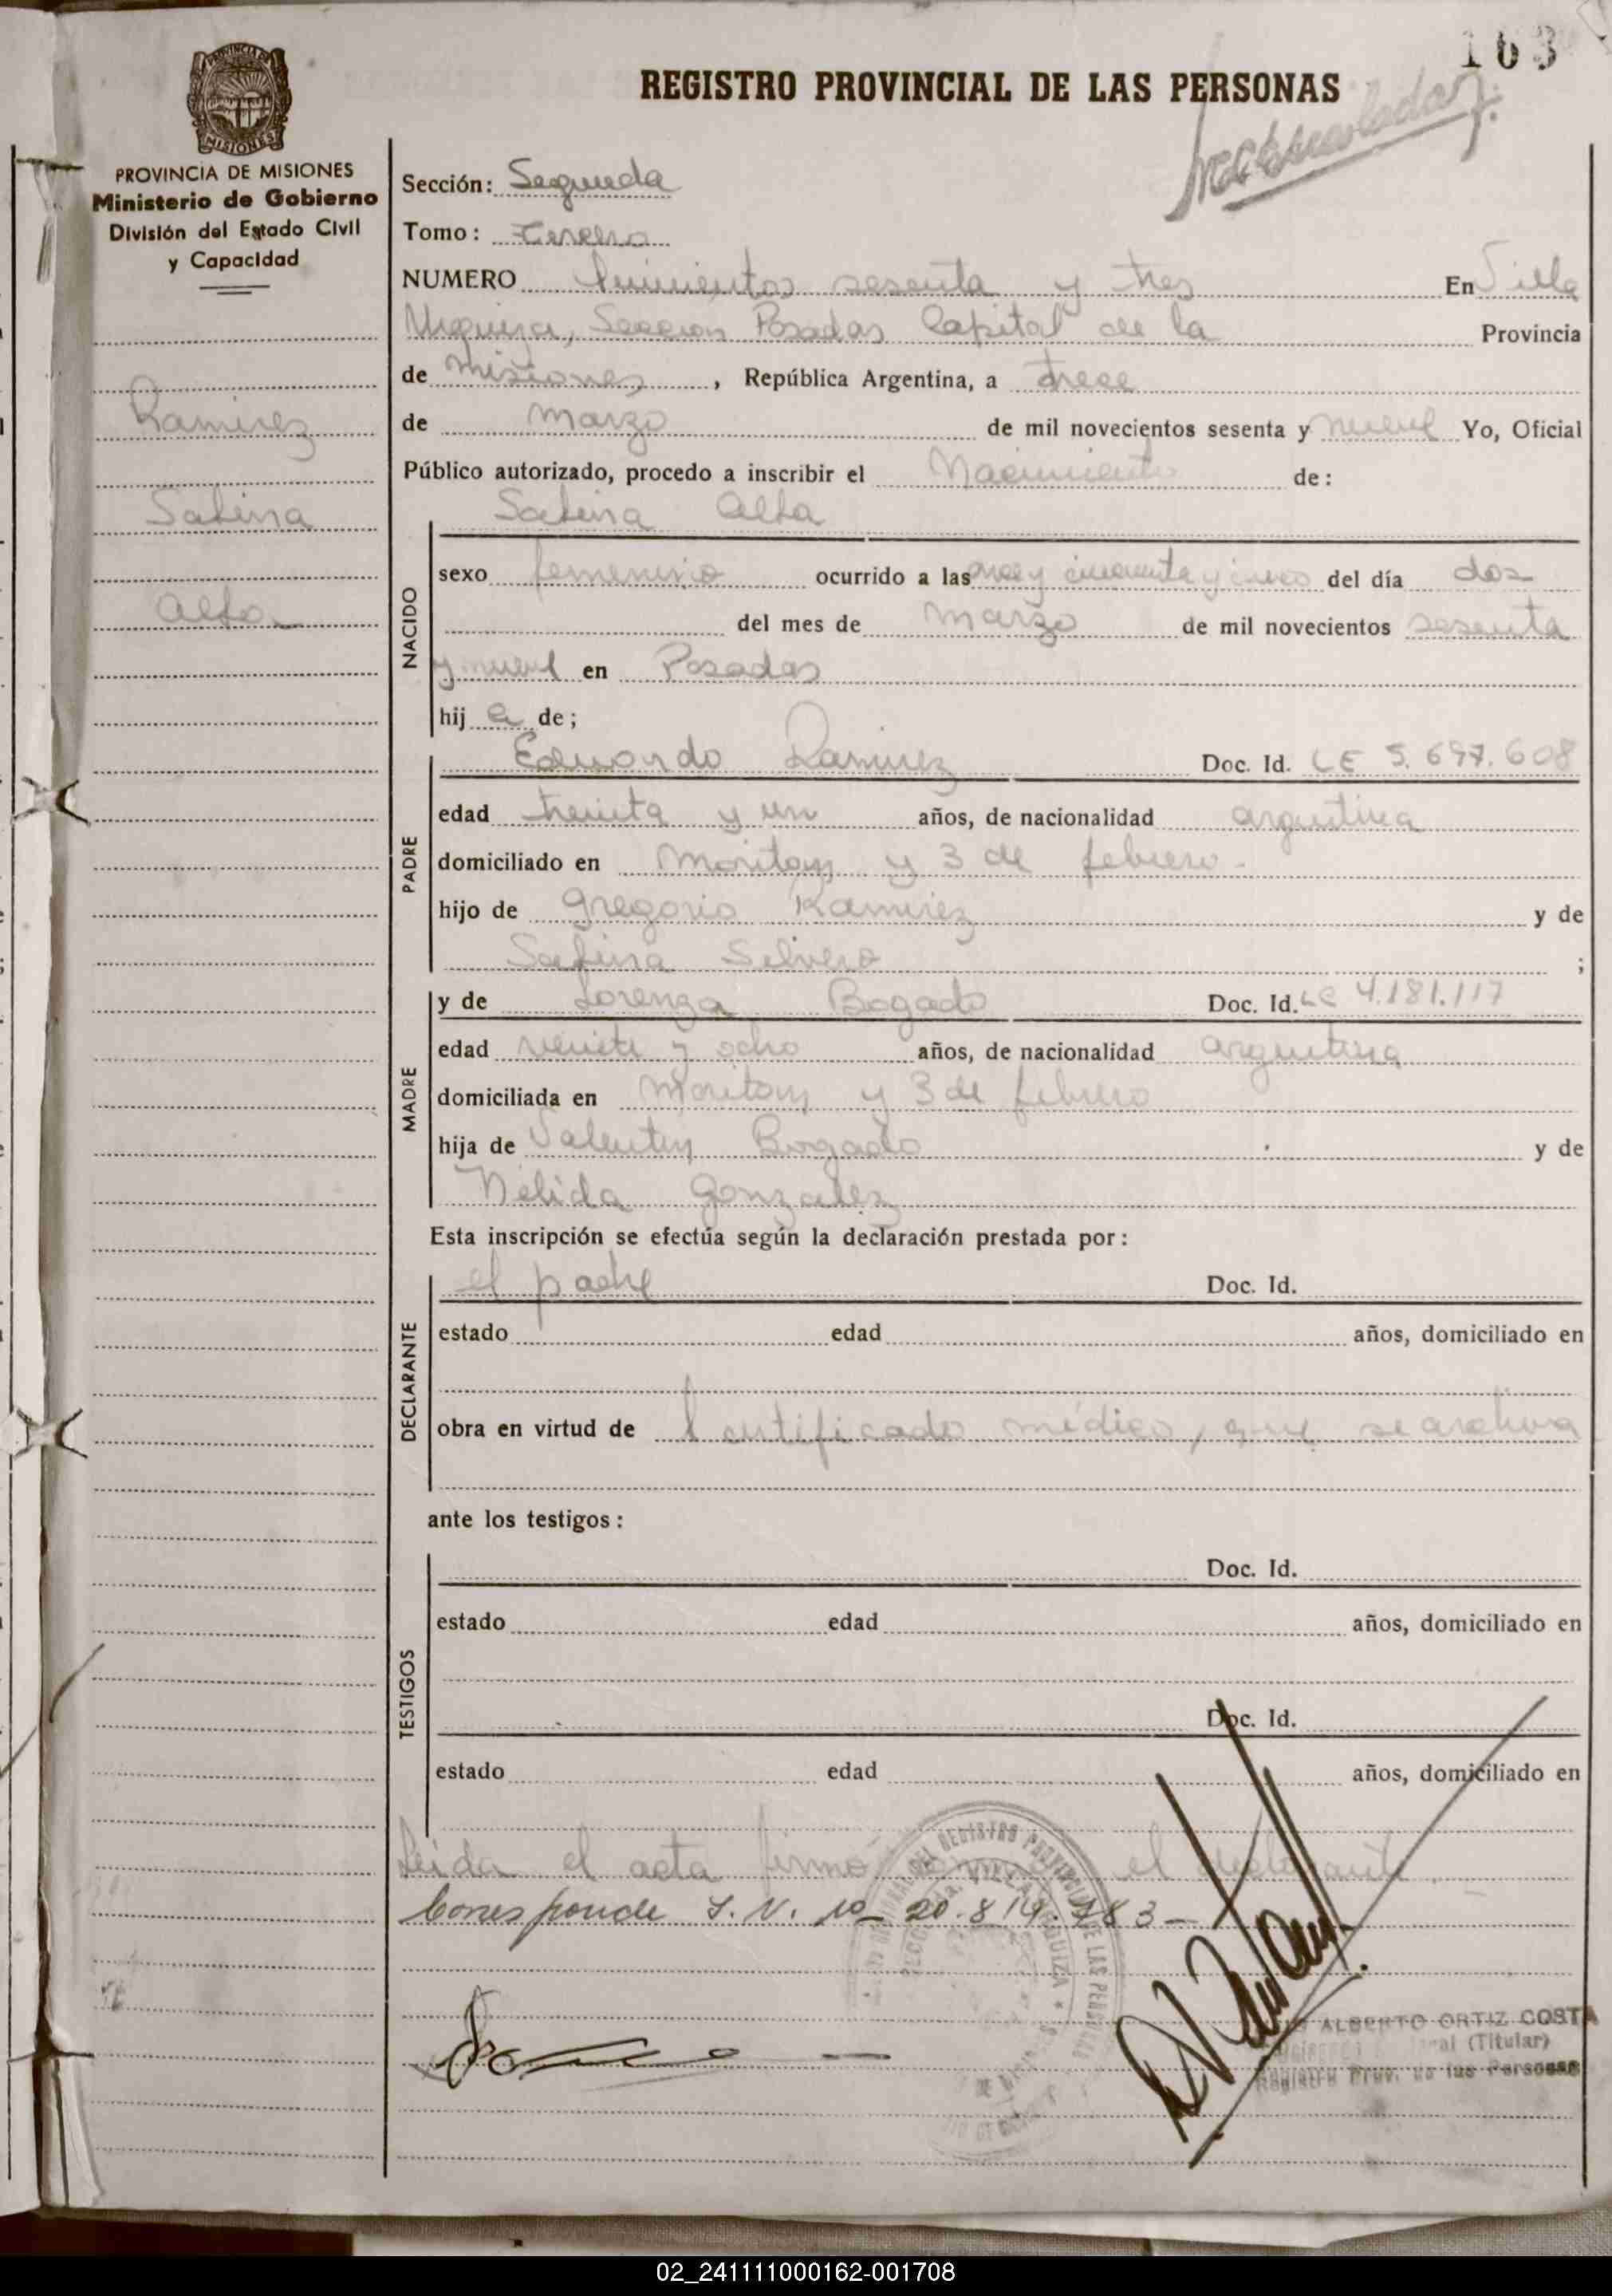 163
REGISTRO PROVINCIAL DE LAS PERSONAS
Matriculada
PROVINCIA DE MISIONES
MISIONES
PROVINCIA DE MISIONES
Ministerio de Gobierno
División del Estado Civil
y Capacidad
Ramirez
Sabina
Alba
Sección: Segunda
Tomo: Tercero
NUMERO Quinientos sesenta y tres En Villa
Urquiza, Seccion Posadas Capital de la Provincia
de Misiones, República Argentina, a trece
de marzo de mil novecientos sesenta y nueve Yo, Oficial
Público autorizado, procedo a inscribir el Nacimiento de:
NACIDO
Sabina Alba
sexo femenino ocurrido a las once y cincuenta y cinco del día dos
del mes de marzo de mil novecientos sesenta
y nueve en Posadas
hij a de;
PADRE
Eduardo Ramirez Doc. Id. LE 5.697.608
edad treinta y un años, de nacionalidad argentina
domiciliado en y 3 de febrero
hijo de Gregorio Ramirez y de
Sabina Silvero ;
MADRE
y de Lorenza Bogado Doc. Id. LC 4.181.117
edad veinte y ocho años, de nacionalidad argentina
domiciliada en y 3 de febrero
hija de Valentin Bogado y de
Nélida Gonzalez
Esta inscripción se efectúa según la declaración prestada por:
DECLARANTE
el padre Doc. Id.
estado edad años, domiciliado en
obra en virtud de certificado médico, que se archiva
ante los testigos:
TESTIGOS
Doc. Id.
estado edad años, domiciliado en
Doc. Id.
estado edad años, domiciliado en
Leida el acta firmó el declarante.
Corresponde I.N. 20.819.
ALBERTO ORTIZ COSTA
(Titular)
Registro Prov. de las Personas
02_241111000162-001708